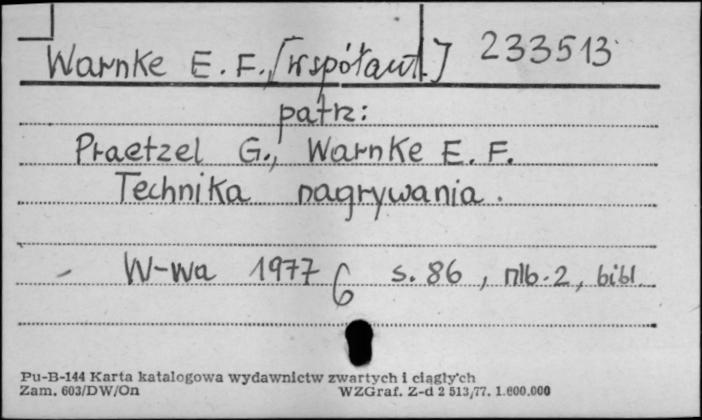 Warnke E. F., [współaut.] 233513
patrz:
Praetzel G., Warnke E. F.
Technika nagrywania.
- W-wa 1977 s. 86, nlb. 2, bibl.
Pu-B-144 Karta katalogowa wydawnictw zwartych i ciągłych
Zam. 603/DW/On WZGraf. Z-d 2 513/77. 1.600.000